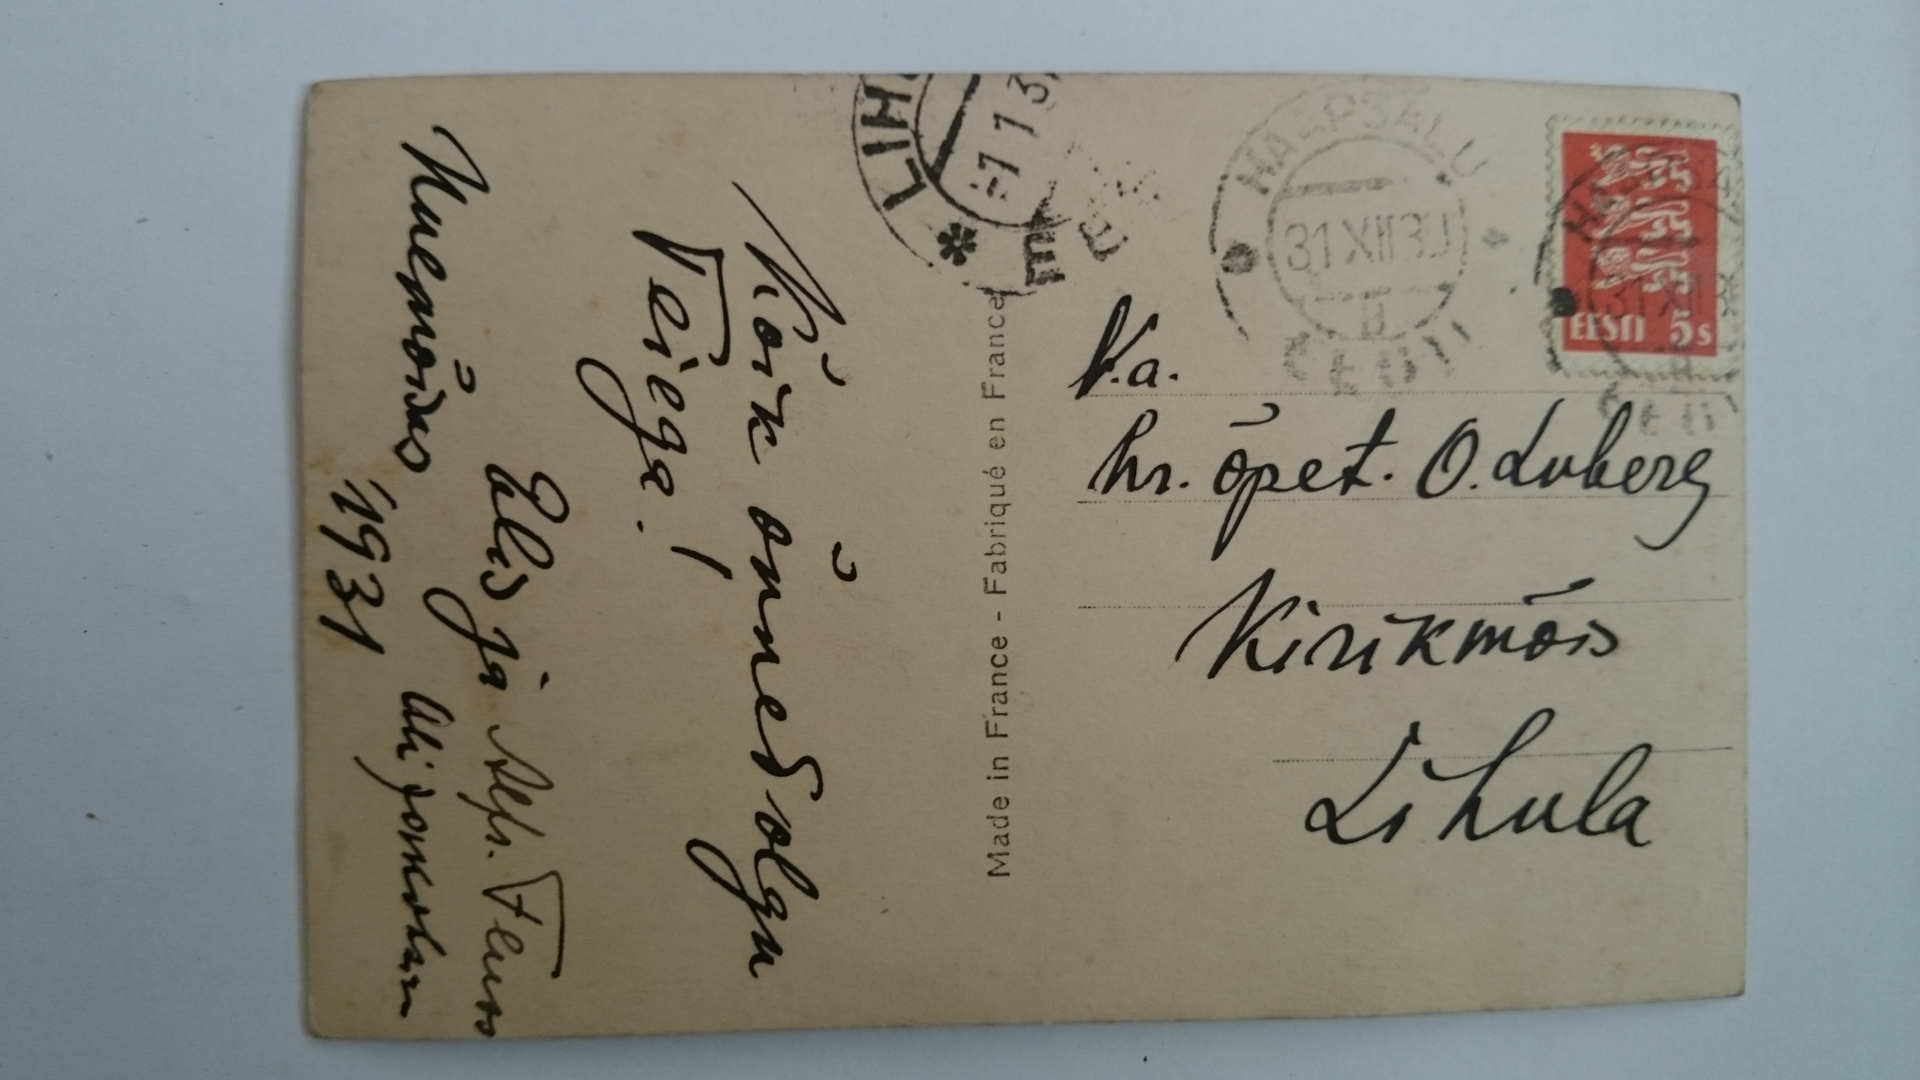 Kõik õnnedolgu
Teiega!
Elis ja Alfr. Tenso
Uuemõisas
1931
Made in France - Fabriqué en France
LIH
-7 1 3
EESTI
HAAPSALU
31 XII 30
B
EESTI
EESTI 5s
V.a.
hr. õpet. O. Luberg
Kirikmõis
Lihula